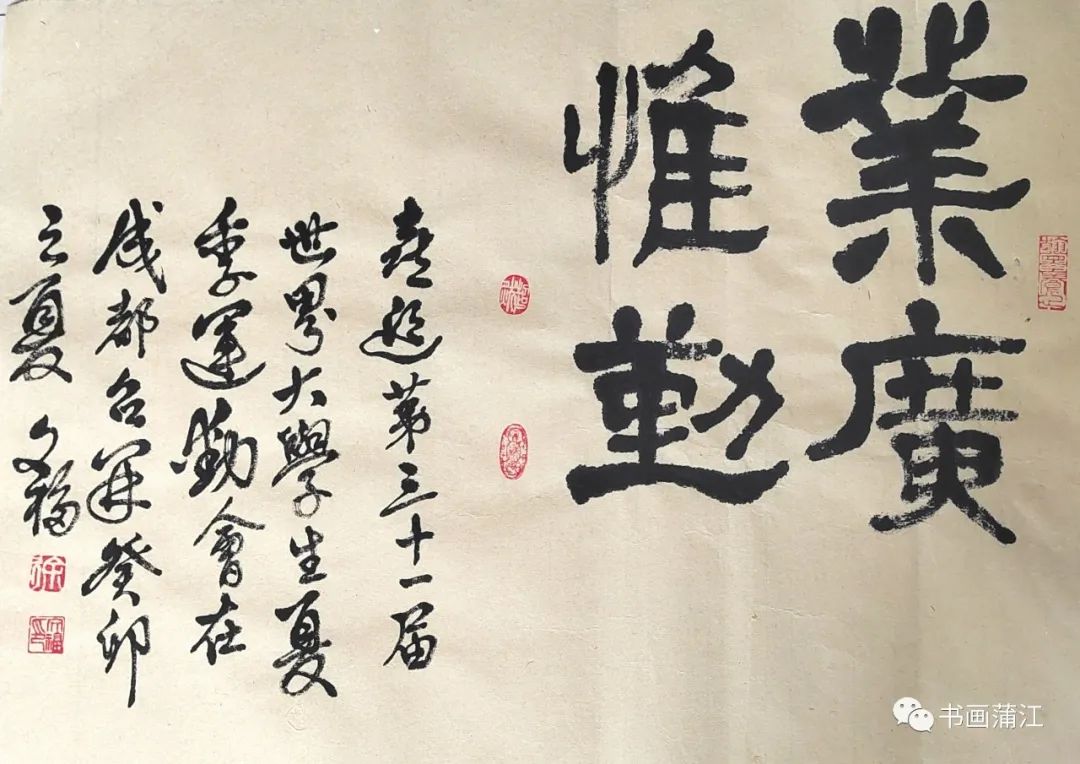 業廣
惟勤
喜迎第三十一届
世界大學生夏
季運動會在
成都召開癸卯
之夏 文福
徐
书画蒲江